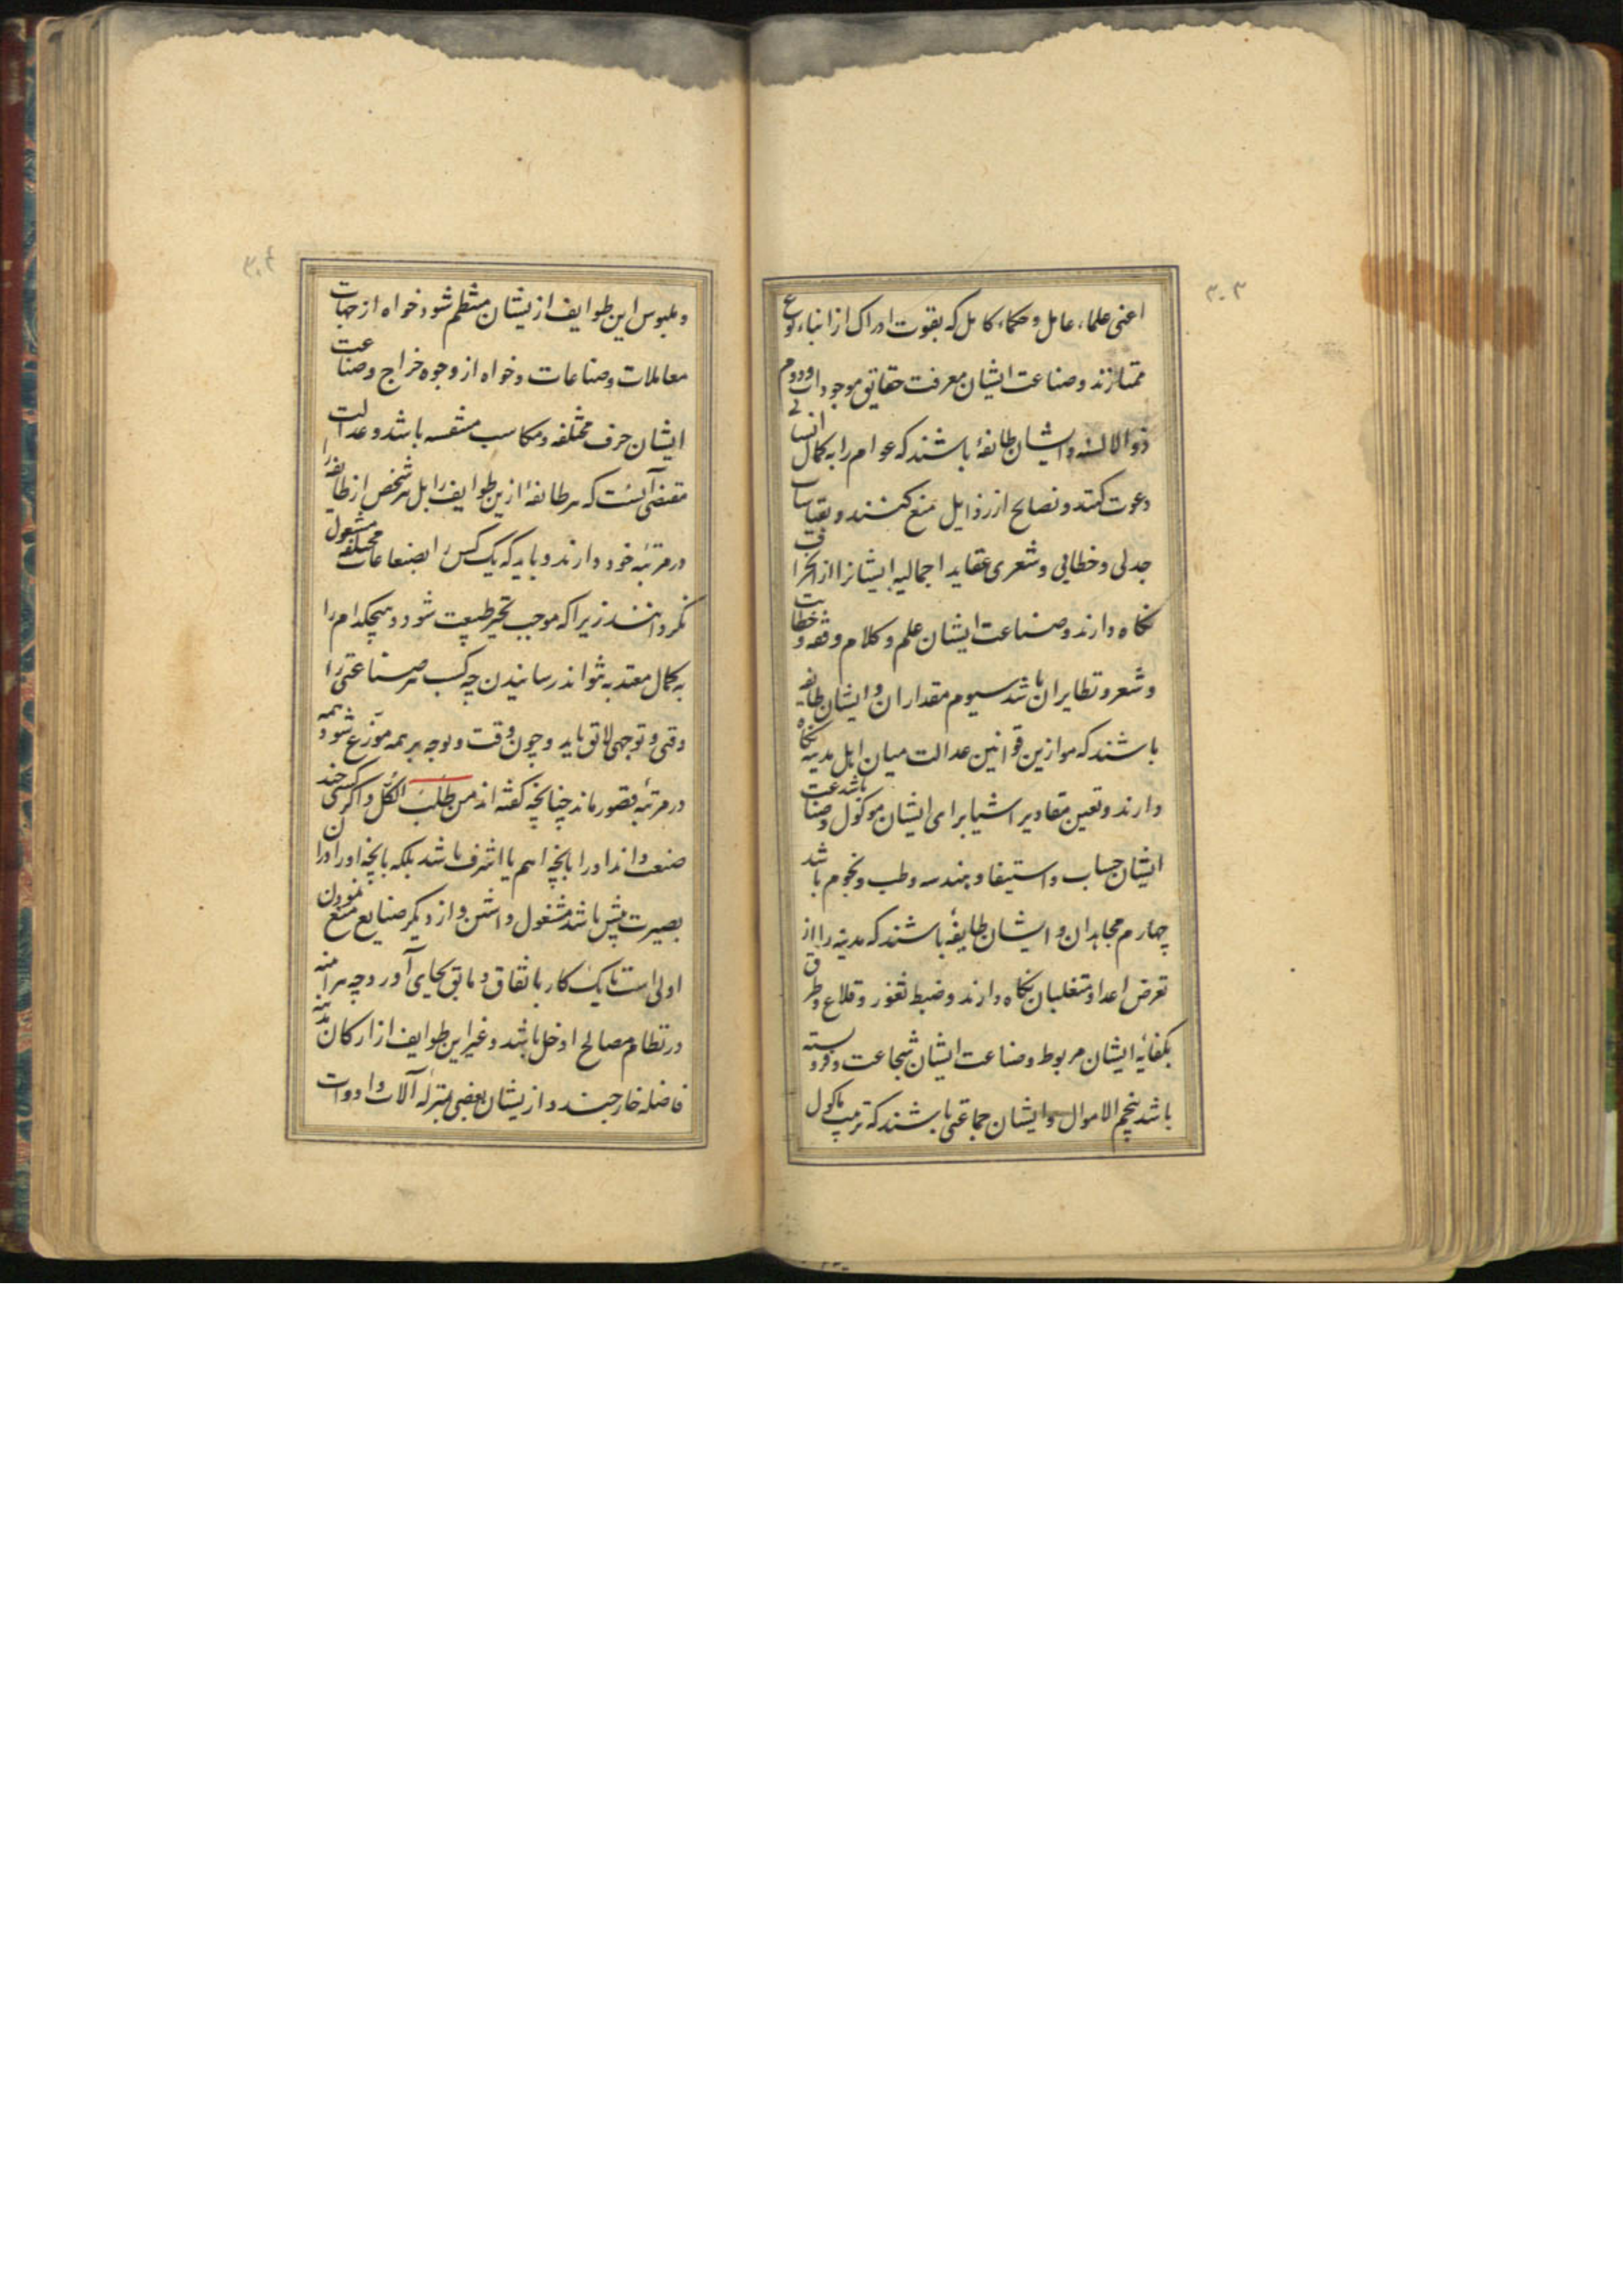 ۳۰۳
اعنی علماء عامل و حکماء کامل که بقوت ادراک از ابناء نوع
ممتازند و صناعت ایشان معرفت حقایق موجودات دوم
ذوالالسنه و ایشان طائفهٔ باشند که عوام را به کمال انسانی
دعوت کنند و نصایح از رذایل منع کنند و بقیاسات
جدلی و خطابی و شعری عقاید اجمالیه ایشانرا از انحراف
نگاه دارند و صناعت ایشان علم و کلام و فقه و خطابت
و شعر و نظایر آن باشد سیوم مقداران و ایشان طائفه
باشند که موازین قوانین عدالت میان اهل مدینه نگاه
دارند و تعین مقادیر اشیا برای ایشان موکول باشد و صناعت
ایشان حساب و استیفا و هندسه و طب و نجوم باشد
چهارم مجاهدان و ایشان طایفهٔ باشند که مدینه را از
تعرض اعدا و متغلبان نگاه دارند و ضبط ثغور و قلاع و طرق
بکفایه ایشان مربوط و صناعت ایشان شجاعت و فروسته
باشد پنجم الاموال و ایشان جماعتی باشند که ترتیب ماکول
۳۰۴
و ملبوس این طوایف ازیشان منتظم شود خواه از جهات
معاملات و صناعات و خواه از وجوه خراج و صناعت
ایشان حرف مختلفه و مکاسب منقسمه باشد و عدالت
مقتضی آنست که هر طائفهٔ ازین طوایف را بل هر شخص از طایفه را
در مرتبهٔ خود دارند و باید که یک کس را بصناعات مختلفه مشغول
نگردانند زیرا که موجب تحیر طبیعت شود و هیچکدام را
به کمال معتد به نتواند رسانیدن چه کسب هر صناعتی را
وقتی و توجهی لایق باید و چون وقت و توجه بر همه موزع شود همه
در مرتبهٔ قصور ماند چنانچه گفته اند من طلب الکل و اگر کسی چند
صنعت داند او را بانچه اهم یا اشرف باشد بلکه بانچه او را دران
بصیرت بیش باشد مشغول داشتن و از دیگر صنایع منع نمودن
اولی است تا یک کار باتفاق و مابق بجای آورد چه هر آینه
در نظام مصالح ادخل باشد و غیر این طوایف از ارکان مدینه
فاضله خارجند و ازیشان بعضی بمنزله آلات و ادوات